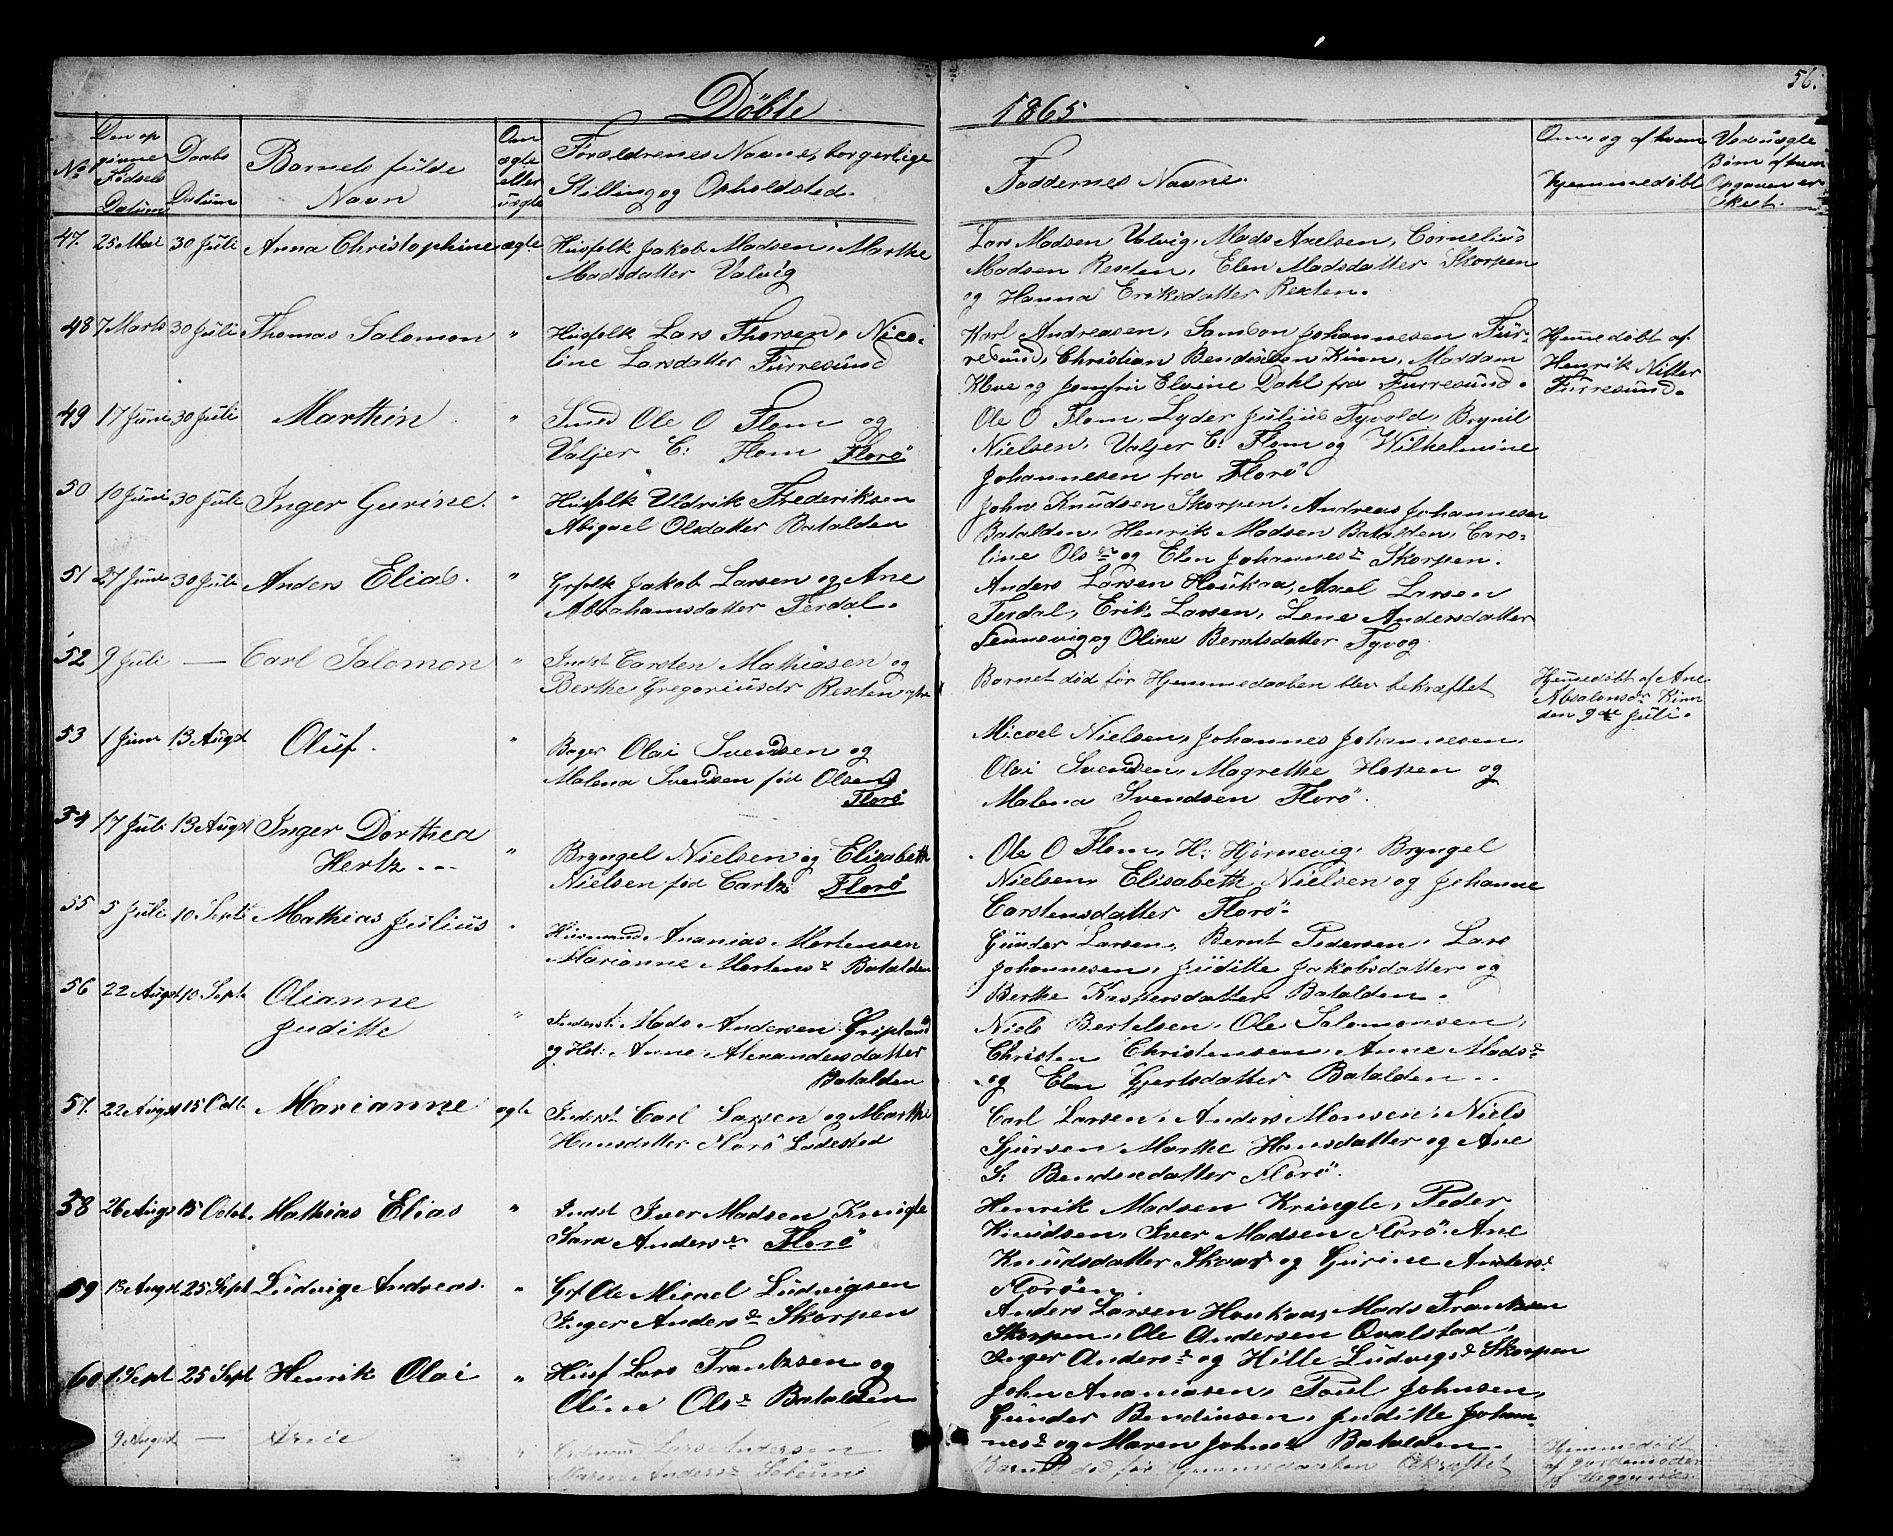 56.
Döbte 1865
No
Den op
givne
Fødsels
Datum
Daabs
Datum
Barnets fulde
Navn
Om
ægte
eller
uægte
Forældrenes Navne, borgerlige
Stilling og Opholdsted.
Faddernes Navne.
Om, og af hvem
hjemmedøbt
Ved uægte
Børn af hvem
Opgaven er
skeet.
47. 25 Mai 30 Juli Anna Christophine ægte Husfolk Jakob Madsen, Marthe
Madsdatter Valvig
Lars Madsen Valvig, Mads Axelsen, Cornelius
Madsen Rexten, Elen Madsdatter Skorpen
og Hanna Eriksdatter Rexten.
48 7 Marts 30 Juli Thomas Salomon " Husfolk Lars Thorsen, Nico-
line Larsdatter Furresund
Karl Andreasen, Samson Johannesen Fur-
resund, Christian Bendixen Kinn, Madam
Klve og Jomfru Elvine Dahl fra Furresund.
Hjemedøbt af
Henrik Nitter
Furresund.
49 17 Juni 30 Juli Marthin " Smed Ole O Flom og
Valjer C. Flom Florö
Ole O Flom, Lyder Julius Tyvold, Brynil
Nielsen, Valjer C. Flom og Wilhelmine
Johannesen fra Florö
50 10 Juni 30 Juli Inger Gurine. " Husfolk Uldrik Frederiksen
Abigael Olsdatter Batalden
John Knudsen Skorpen, Andreas Johannesen
Batalden, Henrik Madsen Batalden, Caro-
line Ols dr og Elen Johannes d Skorpen.
51 27 Juni 30 Juli Anders Elias. " Grfolk Jakob Larsen og Ane
Abrahamsdatter Ferdal.
Anders Larsen Houkaa, Axel Larsen
Ferdal, Erik Larsen, Lene Andersdatter
Femmevig og Oline Berntsdatter Tyvog
52 9 Juli — Carl Salomon " Indst Carsten Mathiasen og
Berthe Gregoriusdr Rexten
Barnet död før Hjemmedaaben blev bekræftet
Hjemedøbt af Ane
Absalonsdr Kinn
den 9de Juli.
53 1 Juni 13 Augst Oluf. " Bager Olai Svendsen og
Malena Svendsen fød Olsen
Florö
Micael Nielsen, Johannes Johannesen,
Olai Svendsen, Magrethe Hopen og
Malena Svendsen Florö.
54 17 Juli 13 Augst Inger Dorthea
Hertz
" Bryngel Nielsen og Elisabeth
Nielsen fød Cartz Florö
Ole O Flom, H: Hjørnevig, Bryngel
Nielsen, Elisabeth Nielsen og Johanne
Carstensdatter Florö
55 5 Juli 10 Septb Mathias Julius " Huusmand Ananias Mortensen
Marianne Mortens d Batalden
Gunder Larsen, Bernt Pedersen, Lars
Johannesen, Juditte Jakobsdatter og
Berthe Kaspersdatter Batalden.
56 22 Augst 10 Septb Olianne
Juditte
" Inderst: Mads Andersen Gripland
og Hst: Anne Alexandersdatter
Batalden
Niels Bertelsen, Ole Salomonsen,
Christen Christensen, Anne Mads d
og Elen Gjertsdatter Batalden
57. 22 Augst 15 Octb. Marianne ægte Inderst Carl Larsen og Marthe
Hansdatter Florö Ladested
Carl Larsen, Anders Monsen, Niels
Sjursen Marthe Hansdatter og Ane
S. Bendixdatter Florö.
58 26 Augst 15 Octob. Mathias Elias " Indst Iver Madsen Kringle
Sara Anders dr Florö
Henrik Madsen Kringle, Peder
Knudsen, Iver Madsen Florö. Ane
Knudsdatter Skaar og Gurine Anders d
Floröen.
59 13 Augst 25 Sept Ludvig Andreas. " Grf Ole Micael Ludvigsen
Inger Anders d Skorpen
Anders Larsen Houkaa, Mads Frantzsen
Skorpen, Ole Andersen Qvalstad,
Inger Anders d og Hille Ludvigs d Skorpen
60 1 Sept 25 Sept Henrik Olai " Husf Lars Frantzsen og
Oline Ols d Batalden
John Ananiasen, Poul Johnsen,
Gunder Bendixsen, Juditte Johan-
nes d og Maren Johns d Batalden.
9 Augst — " Lars Andersen
Maren Anders d
Barnet død før Hjemmedaaben bekræftet
Hjemmedøbt
af Jordemoder